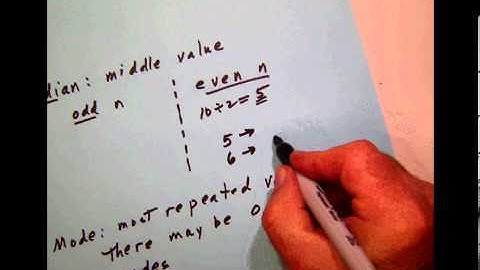 dian: middle value
odd n
even n
10÷2=5
5→
6→
Mode: most repeated v
There may be 0
odes